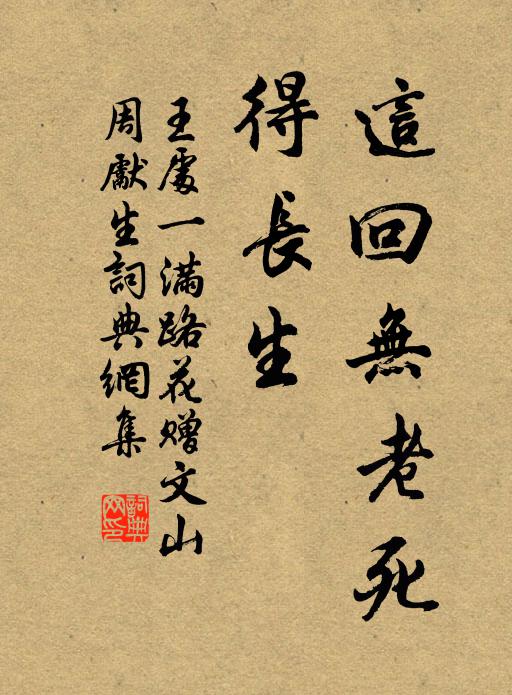 這回無老死
得長生
王處一满路花赠文山
周獻生詞典網集
詞典網印